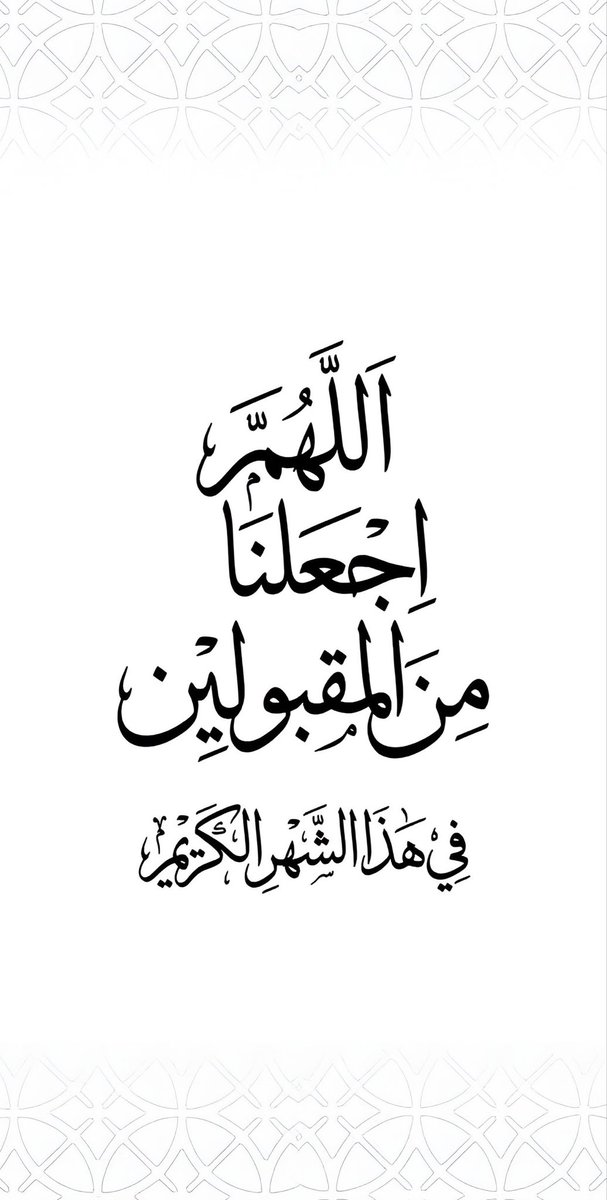 اَللَّهُمَّ
اِجْعَلنَا
مِنَ المقبولِيْن
فِيْ هَذَا الشَّهْرِ الكَرَيْم